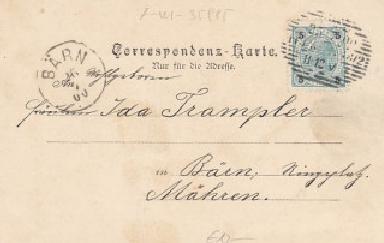 f-WI-35815
Correspondenz-Karte.
Nur für die Adresse.
BÄRN
5 5
An Wohlgeboren
Fräulein Ida Trampler
in Bärn, Ringplatz.
Mähren.